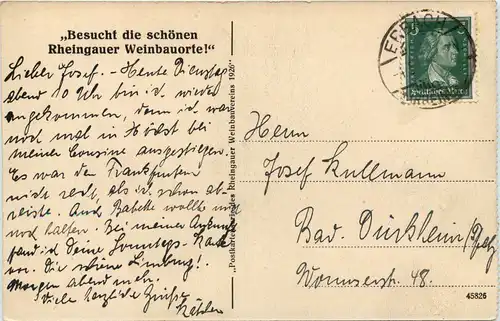 „Besucht die schönen
Rheingauer Weinbauorte!“
Lieber Josef. - Heute Dienstag
abend 10 Uhr bin ich wieder
angekommen, denn ich war
noch mal in Höchst bei
meiner Cousine ausgestiegen.
Es war den Frankfurtern
nicht recht, als ich schon ab-
reiste. Auch Babette wollte mich
noch halten. Bei meiner Ankunft
fand ich Deine Sonntags-Karte
vor. Die schöne Limburg!
Morgen abend mehr.
Viele herzliche Grüße
„Postkarte des Rheingauer Weinbauvereins 1926“
ERBACH
Deutsches Reich
Herrn
Josef Kullmann
Bad. Dürkheim/Pfalz
Wormserstr. 48.
45826